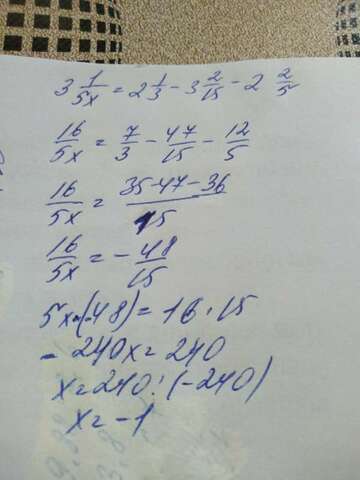 3 1/5x = 2 1/3 - 3 2/15 - 2 2/5
16/5x = 7/3 - 47/15 - 12/5
16/5x = 35-47-36/15
16/5x = - 48/15
5x·(-48) = 16 · 15
- 240x = 240
x = 240 : (-240)
x = -1